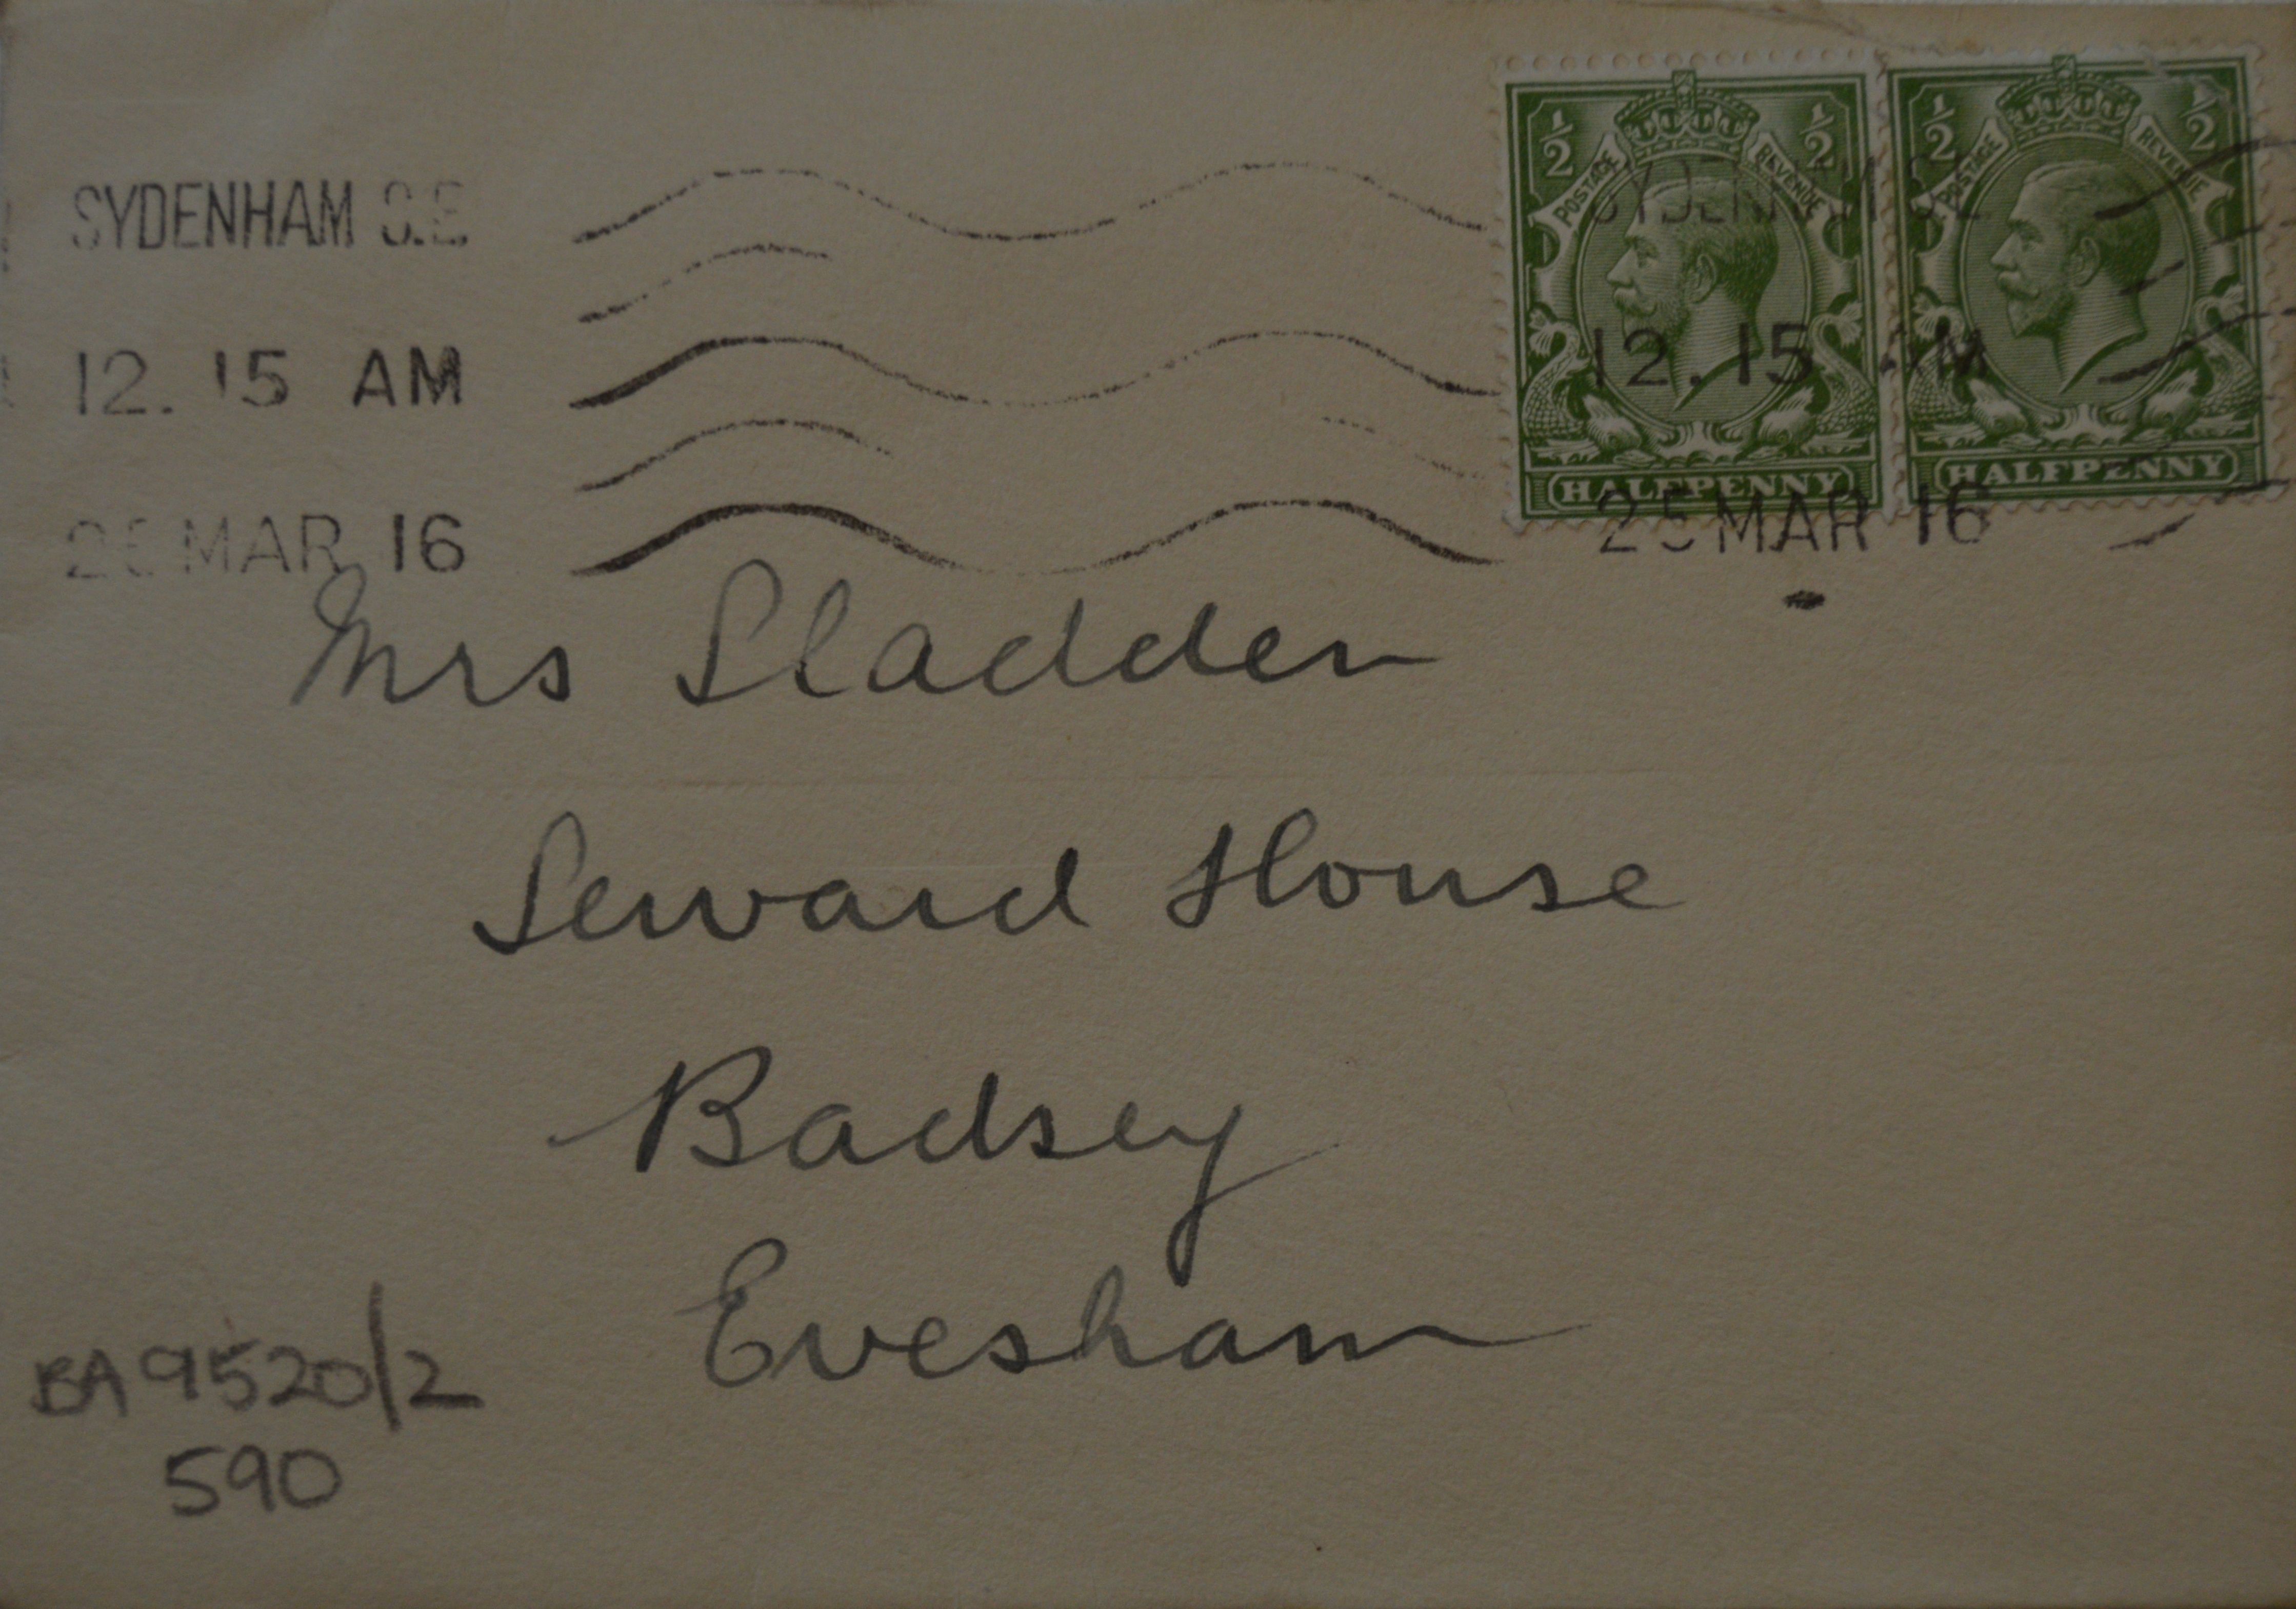 SYDENHAM S.E.
12.15 AM
25 MAR 16
½ ½
POSTAGE REVENUE
HALFPENNY
½ ½
POSTAGE REVENUE
HALFPENNY
SYDENHAM S.E.
12.15 AM
25 MAR 16
Mrs Sladden
Seward House
Badsey
Evesham
BA 9520/2
590